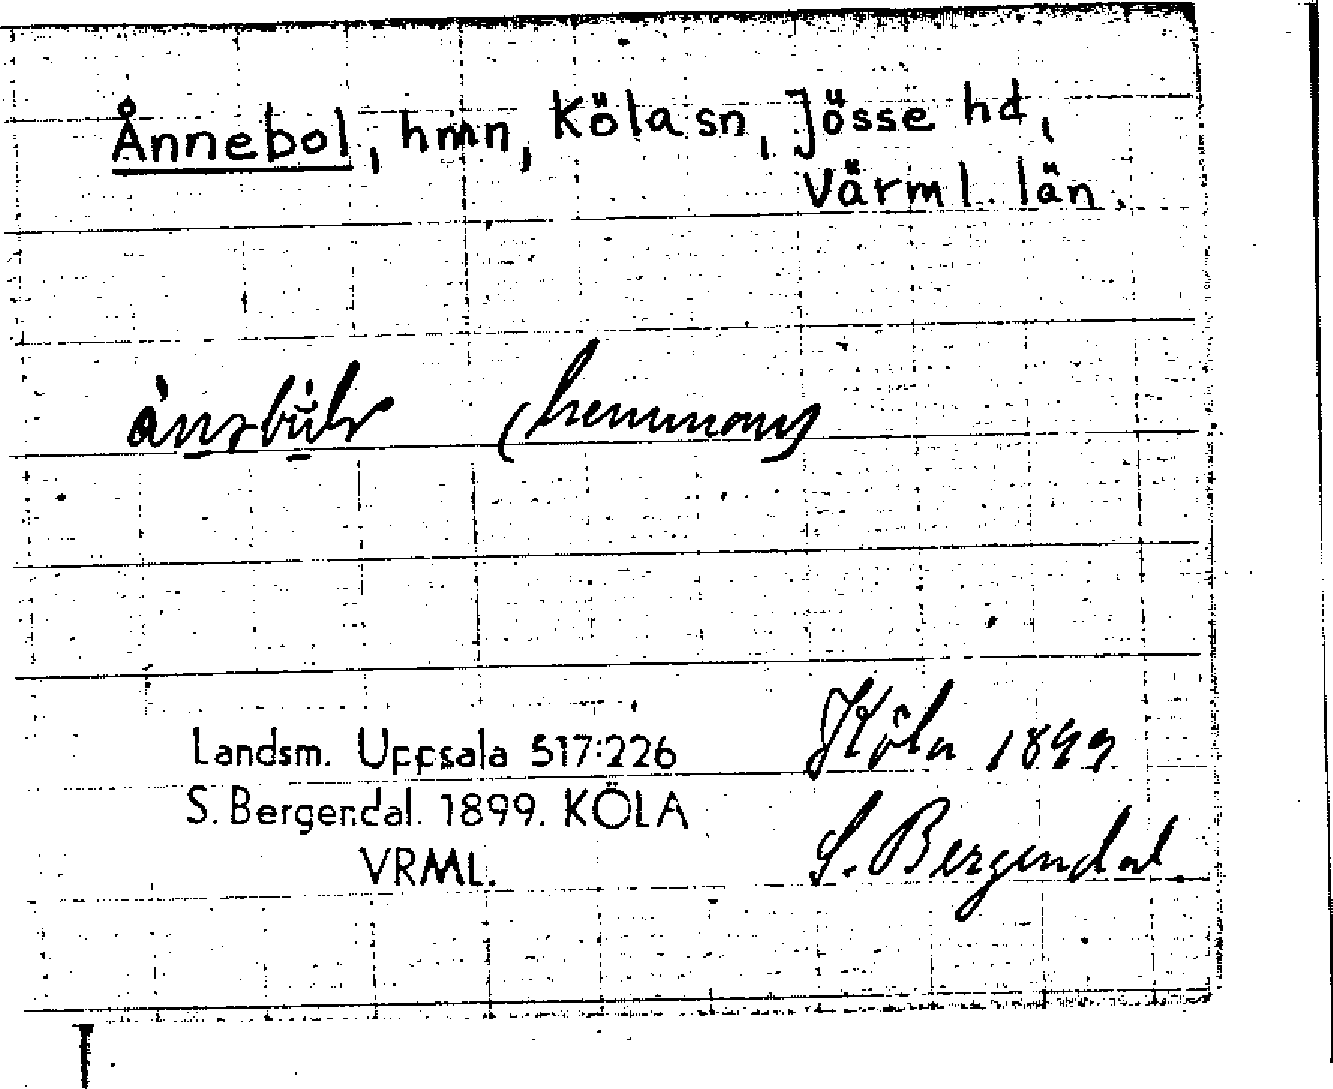 Ånnebol, hmn, Köla sn, Jösse hd,
Värml. län.
(hemman)
Landsm. Uppsala 517:226
S. Bergendal. 1899. KÖLA
VRML.
Köla 1899
S. Bergendal